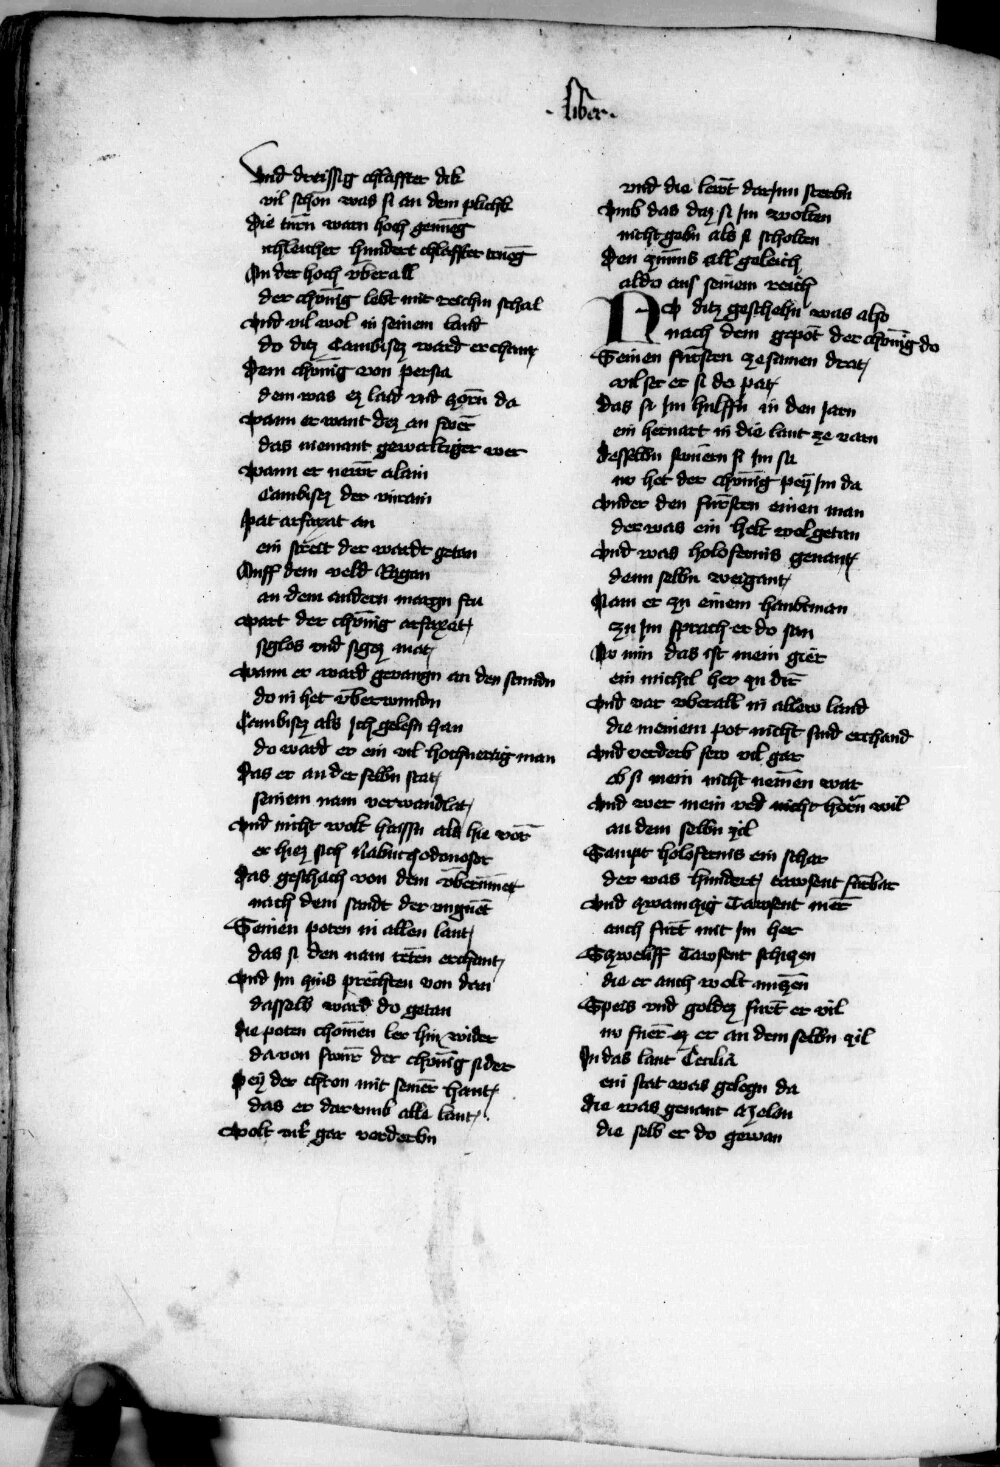 · liber ·
Vnd dreissig chlaffter dik
vil schon was si an dem plichk
Die türn warn hoch genueg
ichleicher hundert chlaffter trueg
In der hoch vberall
der chönig lebt mit reichm schal
Vnd vil wol in seinem land
do ditz Cambisez ward erchant
Dem chönig von persia
dem was ez laid vnd zorn da
Wann er want dez an swer
das niemant gewaltiger wer
Wann er newr alain
Cambisez der vnrain
Pat arfaxat an
ein streit der wardt getan
Auff dem veld Ragau
an dem andern margn fru
Wart der chönig arfaxat
siglos vnd sigez mat
Wann er ward gevangn an den stundn
do in het vberwundn
Cambisez als ich gelesn han
do ward er ein vil hochfuertig man
Das er an der selbn stat
seinem nam verwandlat
Vnd nicht wolt haissn als hie vor
er hiez sich Nabuchodonosor
Das geschach von dem vbermuet
nach dem sandt der unguet
Seinen poten in allen lant
das si den nam teten erchant
Vnd im zins prechten von dan
dasselb ward do getan
Die poten chomen ler hin wider
da von swur der chönig sider
Pey der chron mit seiner hant
das er darvmb alle lant
Wolt vil gar verderbn
vnd die lewt darInn sterbn
Vmb das daz si Im wolten
nicht gebn als si scholten
Den zinns all geleich
aldo aus seinem reich
NO ditz geschehn was also
nach dem gepot der chönig do
Seinen fursten zesamen drat
vil ser er si do pat
Das si Im hulffn in den Jarn
ein hervart in die lant ze varn
Desselbn swuern si Im sa
no het der chönig pey Im da
Vnder den fursten einen man
der was ein helt wol getan
Vnd was holofernis genant
denn selbn weigant
Nam er zu einem haubtman
zu Im sprach er do san
No nim das ist mein gier
ein michil her zu dir
Vnd var vberall in allew land
die meinem pot nicht sind erchand
Vnd verderb sew vil gar
ob si mein nicht nemen war
Vnd wer mein red nicht hörn wil
an dem selbn zil
Sampt holofernis ein schar
der was hundert tawsent furbar
Vnd zwainzig Tawsent mer
auch furt mit Im her
Szweliff Tawsent schuzen
die er auch wolt nuzen
Speis vnd goldez furt er vil
no fuer ez er an dem selbn zil
In das lant Cecilia
ein stat was gelegn da
Die was genant Azelon
die selb er do gewan